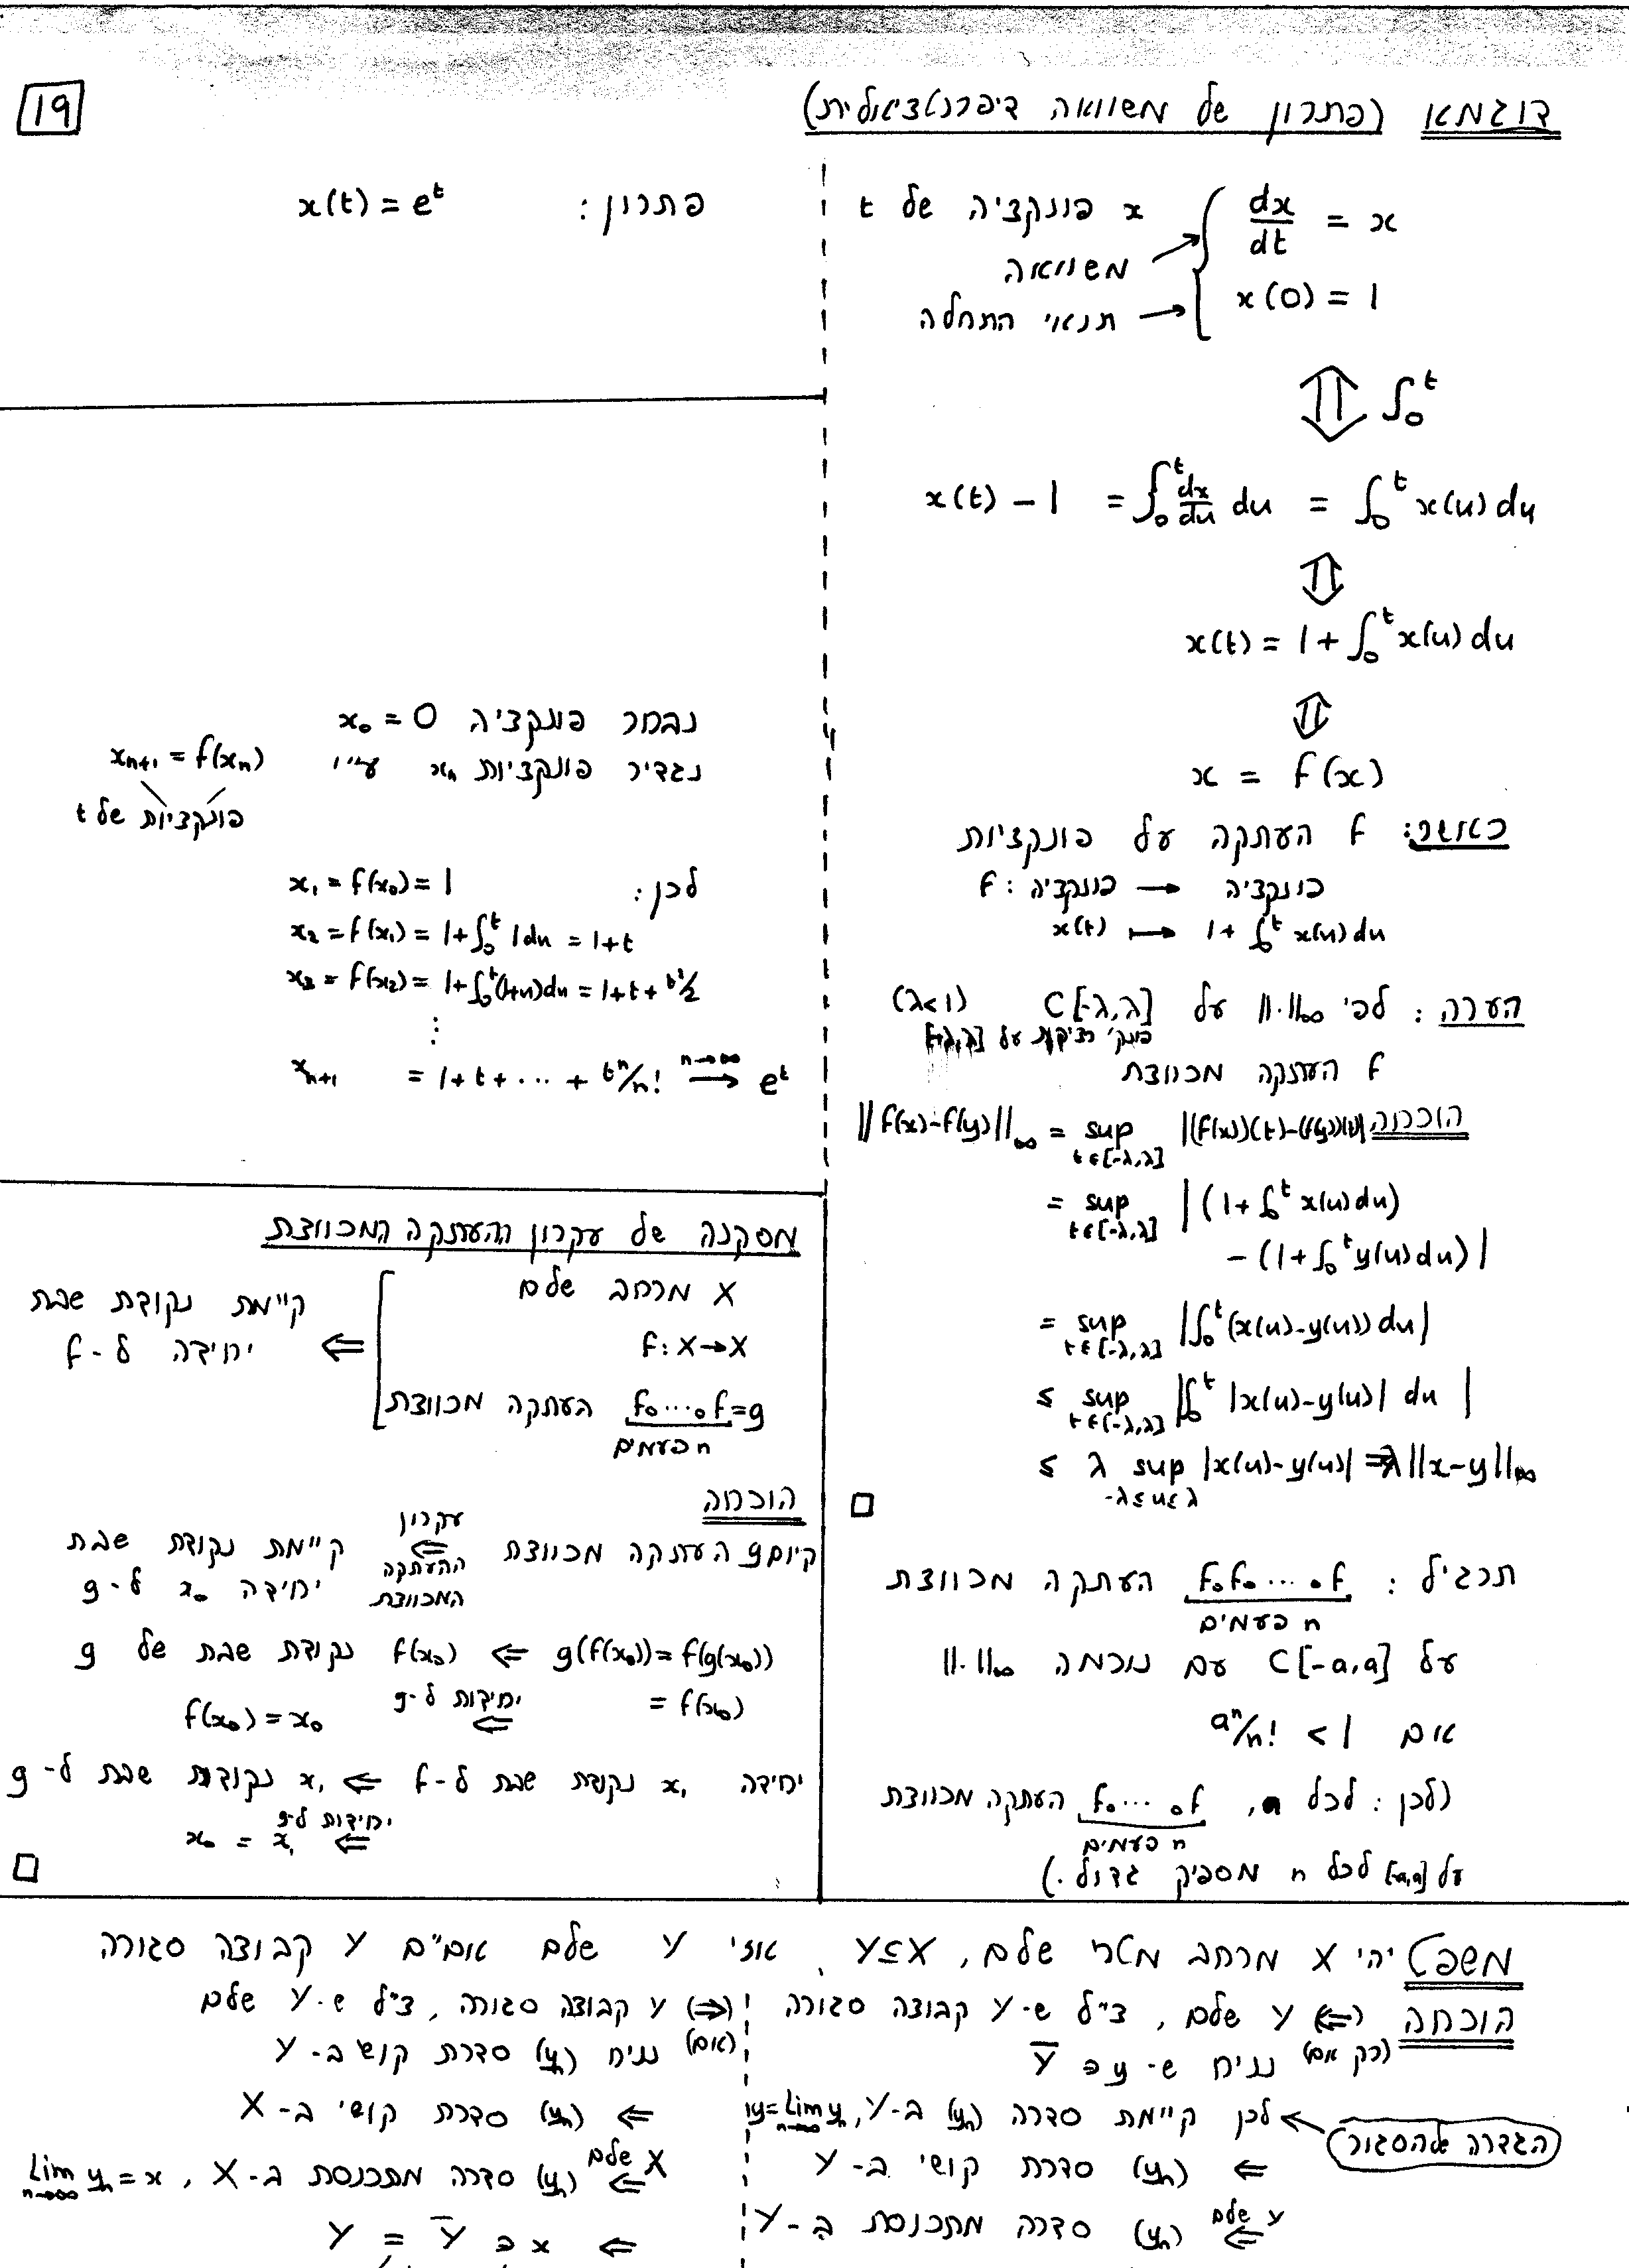 19
דוגמא (פתרון של משוואה דיפרנציאלית)
x פונקציה של t
משוואה → dx/dt = x
תנאי התחלה → x(0) = 1
⇕ ∫₀ᵗ
x(t) − 1 = ∫₀ᵗ dx/du du = ∫₀ᵗ x(u) du
⇕
x(t) = 1 + ∫₀ᵗ x(u) du
⇕
x = f(x)
כאשר: f העתקה על פונקציות
f : פונקציה → פונקציה
x(t) ↦ 1 + ∫₀ᵗ x(u) du
הערה: לפי ‖·‖∞ על C[-λ,λ] (λ<1)
פונק' רציפות על [-λ,λ]
f העתקה מכווצת
הוכחה ‖f(x)−f(y)‖∞ = sup t∈[-λ,λ] |(f(x))(t)−(f(y))(t)|
= sup t∈[-λ,λ] |(1+∫₀ᵗ x(u)du)
− (1+∫₀ᵗ y(u)du)|
= sup t∈[-λ,λ] |∫₀ᵗ (x(u)−y(u)) du|
≤ sup t∈[-λ,λ] |∫₀ᵗ |x(u)−y(u)| du|
≤ λ sup -λ≤u≤λ |x(u)−y(u)| = λ‖x−y‖∞
□
תרגיל: f∘f∘⋯∘f העתקה מכווצת
n פעמים
על C[-a,a] עם נורמה ‖·‖∞
אם aⁿ/n! < 1
(לכן: לכל a, f∘⋯∘f העתקה מכווצת
n פעמים
על [-a,a] לכל n מספיק גדול.)
פתרון: x(t) = eᵗ
נבחר פונקציה x₀ = 0
נגדיר פונקציות xₙ ע״י xₙ₊₁ = f(xₙ)
פונקציות של t
לכן: x₁ = f(x₀) = 1
x₂ = f(x₁) = 1+∫₀ᵗ 1du = 1+t
x₃ = f(x₂) = 1+∫₀ᵗ(1+u)du = 1+t+t²/2
⋮
xₙ₊₁ = 1+t+⋯+tⁿ/n! n→∞ → eᵗ
מסקנה של עקרון ההעתקה המכווצת
X מרחב שלם
f: X→X
g=f∘⋯∘f העתקה מכווצת
n פעמים
⇐ קיימת נקודת שבת
יחידה ל-f
הוכחה
קיום g העתקה מכווצת ⇐ קיימת נקודת שבת
עקרון
ההעתקה
המכווצת
יחידה x₀ ל-g
g(f(x₀)) = f(g(x₀)) ⇐ f(x₀) נקודת שבת של g
= f(x₀)
יחידות ל-g ⇐ f(x₀) = x₀
יחידה x₁ נקודת שבת ל-f ⇐ x₁ נקודת שבת ל-g
יחידות ל-g ⇐ x₀ = x₁
□
משפט יהי X מרחב מטרי שלם, Y⊆X. אזי Y שלם אם״ם Y קבוצה סגורה
הוכחה (⇐) Y שלם, צ״ל ש-Y קבוצה סגורה
(רק אם) נניח ש- y∈Ȳ
לכן קיימת סדרה (yₙ) ב-Y, y=lim n→∞ yₙ
הגדרה של הסגור
⇐ (yₙ) סדרת קושי ב-Y
Y שלם ⇐ (yₙ) סדרה מתכנסת ב-Y
(⇒) Y קבוצה סגורה, צ״ל ש-Y שלם
(אם) נניח (yₙ) סדרת קושי ב-Y
⇐ (yₙ) סדרת קושי ב-X
X שלם ⇐ (yₙ) סדרה מתכנסת ב-X, lim n→∞ yₙ = x
⇐ x ∈ Ȳ = Y